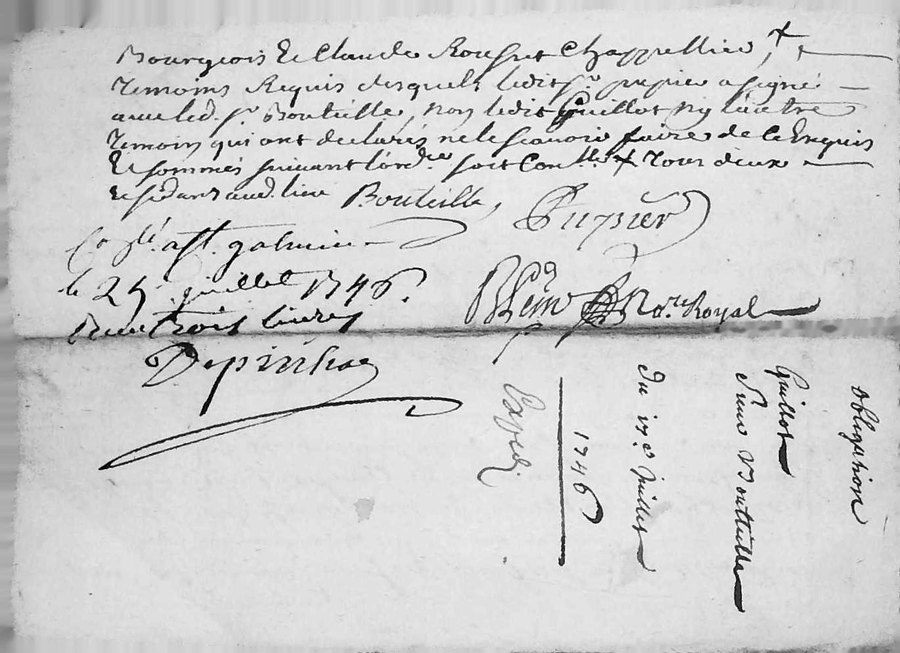 Bourgeois et Claude Rousset Chappellier, +
temoins Requis desquels ledit sr. pupier a signé
avec led. sr Bouteille, non ledit Guillot ny lautre
temoin qui ont declarés ne le scavoir faire de ce Enquis
et sommés suivant lordce. soit Conllé + tous deux
residans aud. lieu Bouteille,
Pupier
Collé. a St. galmier
le 25 juillet 1746.
trois livres
Nore. Royal
Expedi
obligation
Guillot
Sieur Bouteille
Du 17e Juillet
1746